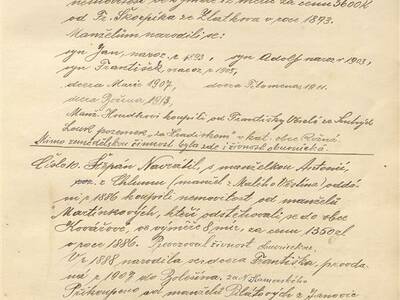 za cenu 3600 K
od Fr. Skoupíka ze Zlatkova v roce 1893.
Manželům narodili se:
syn Jan, naroz. r. 1893, syn Adolf naroz r 1903,
syn František naroz r. 1905,
dcera Marie 1907, dcera Filomena 1911.
dcera Božena 1913.
Manž. koupili od Františky
Louk. pozemek, "za Hradiskem" v kat. obce Rožná.
Mimo zemědělskou činnost byla zde i živnost obuvnická.
Číslo 10. Štěpán Navrátil, s manželkou Antonií,
z Chlumu (manžel z Malého
ní, r 1886 koupili nemovitost od manželů
Martinkových, kteří odstěhovali se do obce
Kovářové, ve výměře 8 měr, za cenu 1350 zl
v roce 1886. Provozoval živnost obuvnickou.
V r 1888 narodila se dcera Františka, provda-
ná r 1907 do Zolešína. za
Přikoupeno od manželů z Janovic